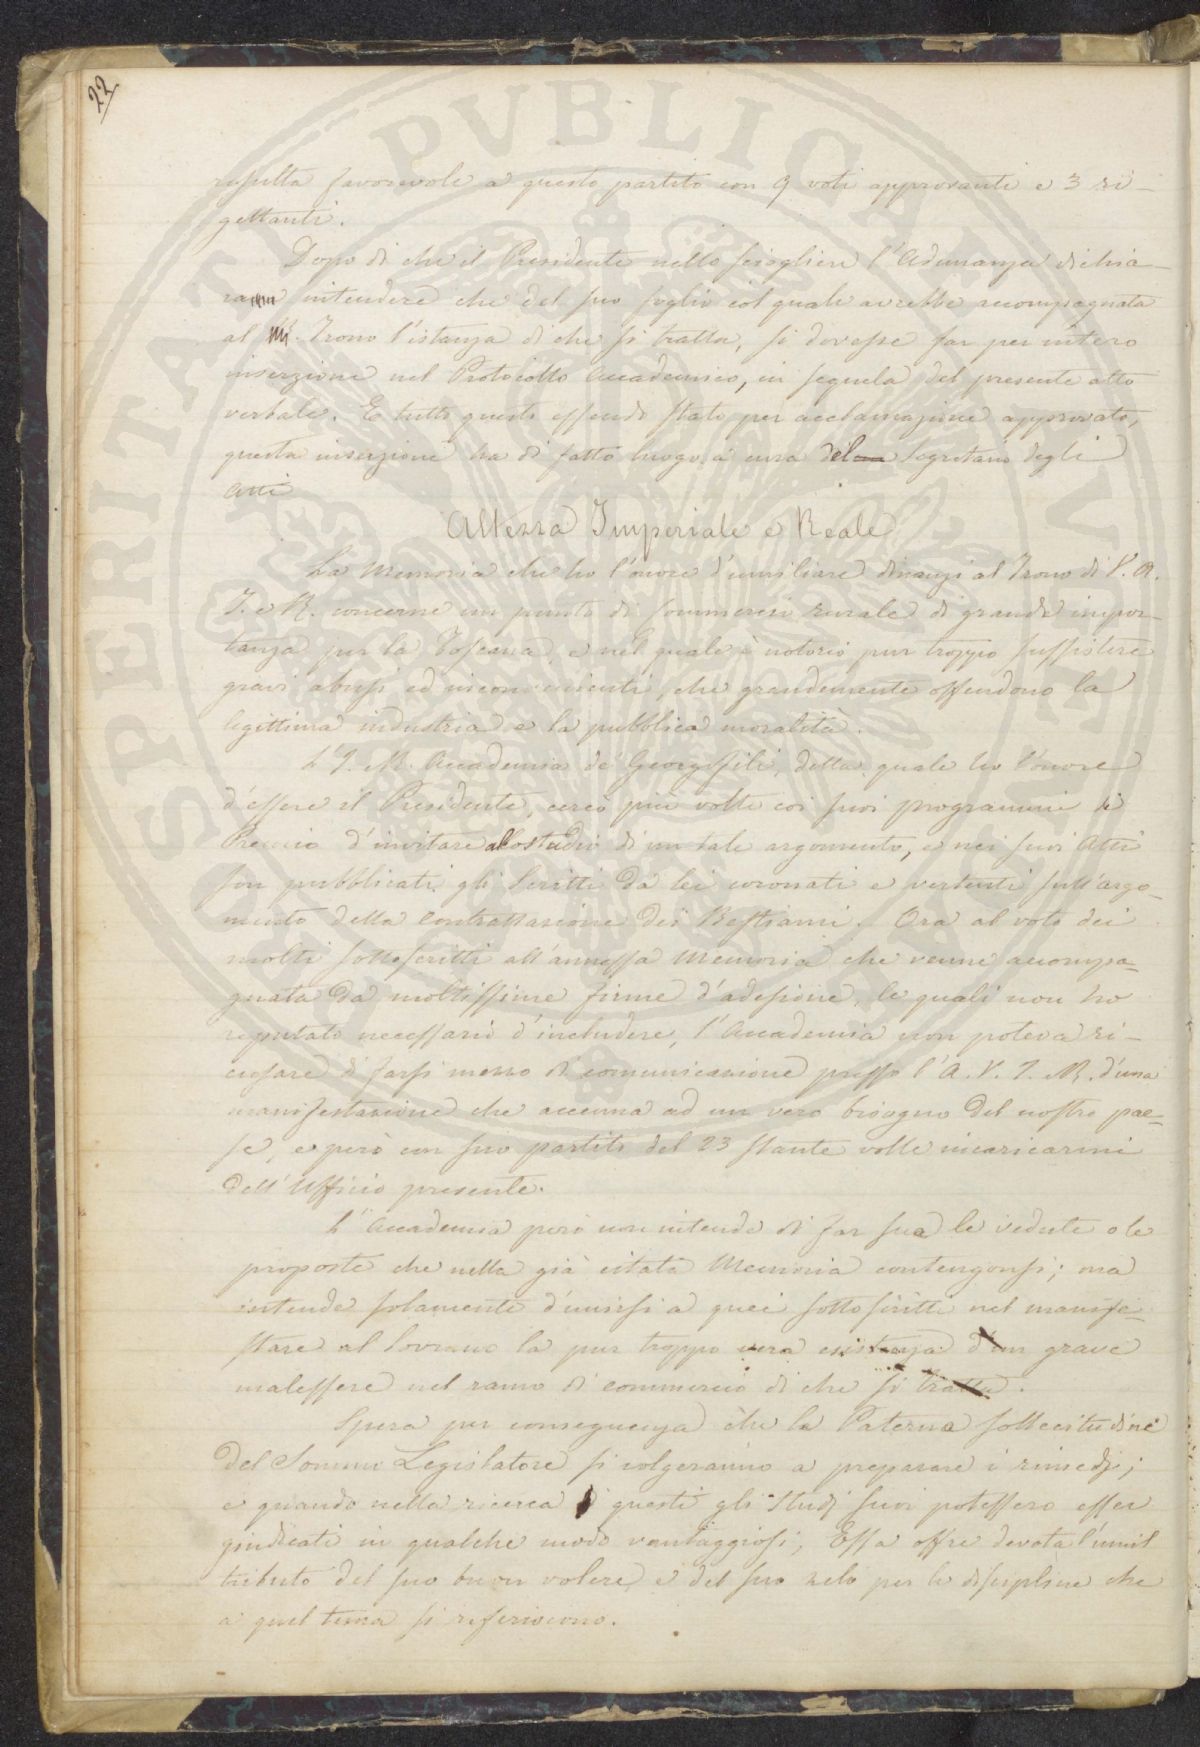 22
resulta favorevole a questo partito con 9 voti approvanti e 3 ri-
gettanti.
Dopo di che il Presidente nello sciogliere l'Adunanza dichia-
ra intendere che del suo foglio col quale avrebbe accompagnata
al R. Trono l'istanza di che si tratta, si dovesse far per intero
inserzione nel Protocollo Accademico, in sequela del presente atto
verbale. E tutto questo essendo stato per acclamazione approvato,
questa inserzione ha di fatto luogo a cura del Segretario degli
Atti
Altezza Imperiale e Reale
La Memoria che ho l'onore d'umiliare dinanzi al Trono di V. A.
I. e R. concerne un punto di commercio rurale di grande impor-
tanza per la Toscana, e nel quale è notorio pur troppo sussistere
gravi abusi ed inconvenienti, che grandemente offendono la
legittima industria e la pubblica moralità.
L'I. e R. Accademia de' Georgofili, della quale ho l'onore
d'essere il Presidente, cercò più volte coi suoi programmi di
Premio d'invitare allo studio di un tale argomento, e nei suoi Atti
son pubblicati gli Scritti da lei coronati e vertenti sull'argo-
mento della Contrattazione dei Bestiami. Ora al voto dei
molti sottoscritti all'annessa Memoria che venne accompa-
gnata da moltissime firme d'adesione, le quali non ho
reputato necessario d'includere, l'Accademia non poteva ri-
cusare di farsi mezzo di comunicazione presso l'A. V. I. e R. d'una
manifestazione che accenna ad un vero bisogno del nostro pae-
se, e però con suo partito del 23 stante volle incaricarmi
dell'Ufficio presente.
L'Accademia però non intende di far sua le vedute o le
proposte che nella già citata Memoria contengonsi; ma
intende solamente d'unirsi a quei sottoscritti nel manife-
stare al Sovrano la pur troppo vera esistenza d'un grave
malessere nel ramo di commercio di che si tratta.
Spera per conseguenza che la Paterna sollecitudine
del Sommo Legislatore si volgeranno a preparare i rimedj;
e quando nella ricerca di questi gli Studj suoi potessero esser
giudicati in qualche modo vantaggiosi, Essa offre devota l'umil
tributo del suo buon volere e del suo zelo per le discipline che
a quel tema si riferiscono.
PROSPERITATI PVBLICAE